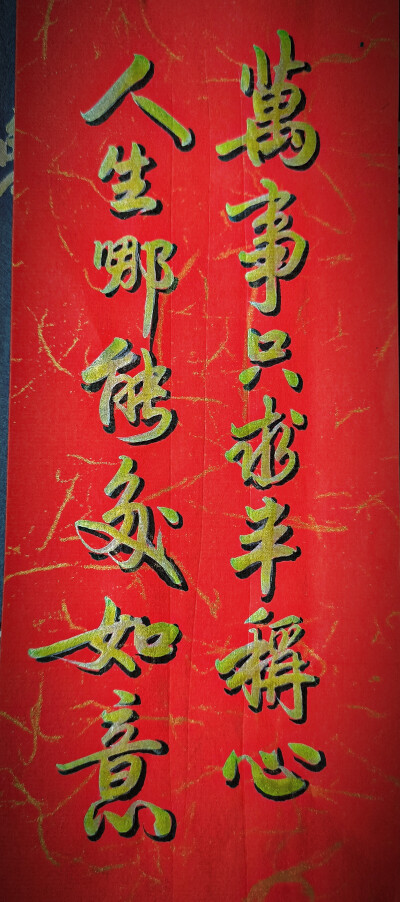 萬事只求半稱心
人生哪能多如意